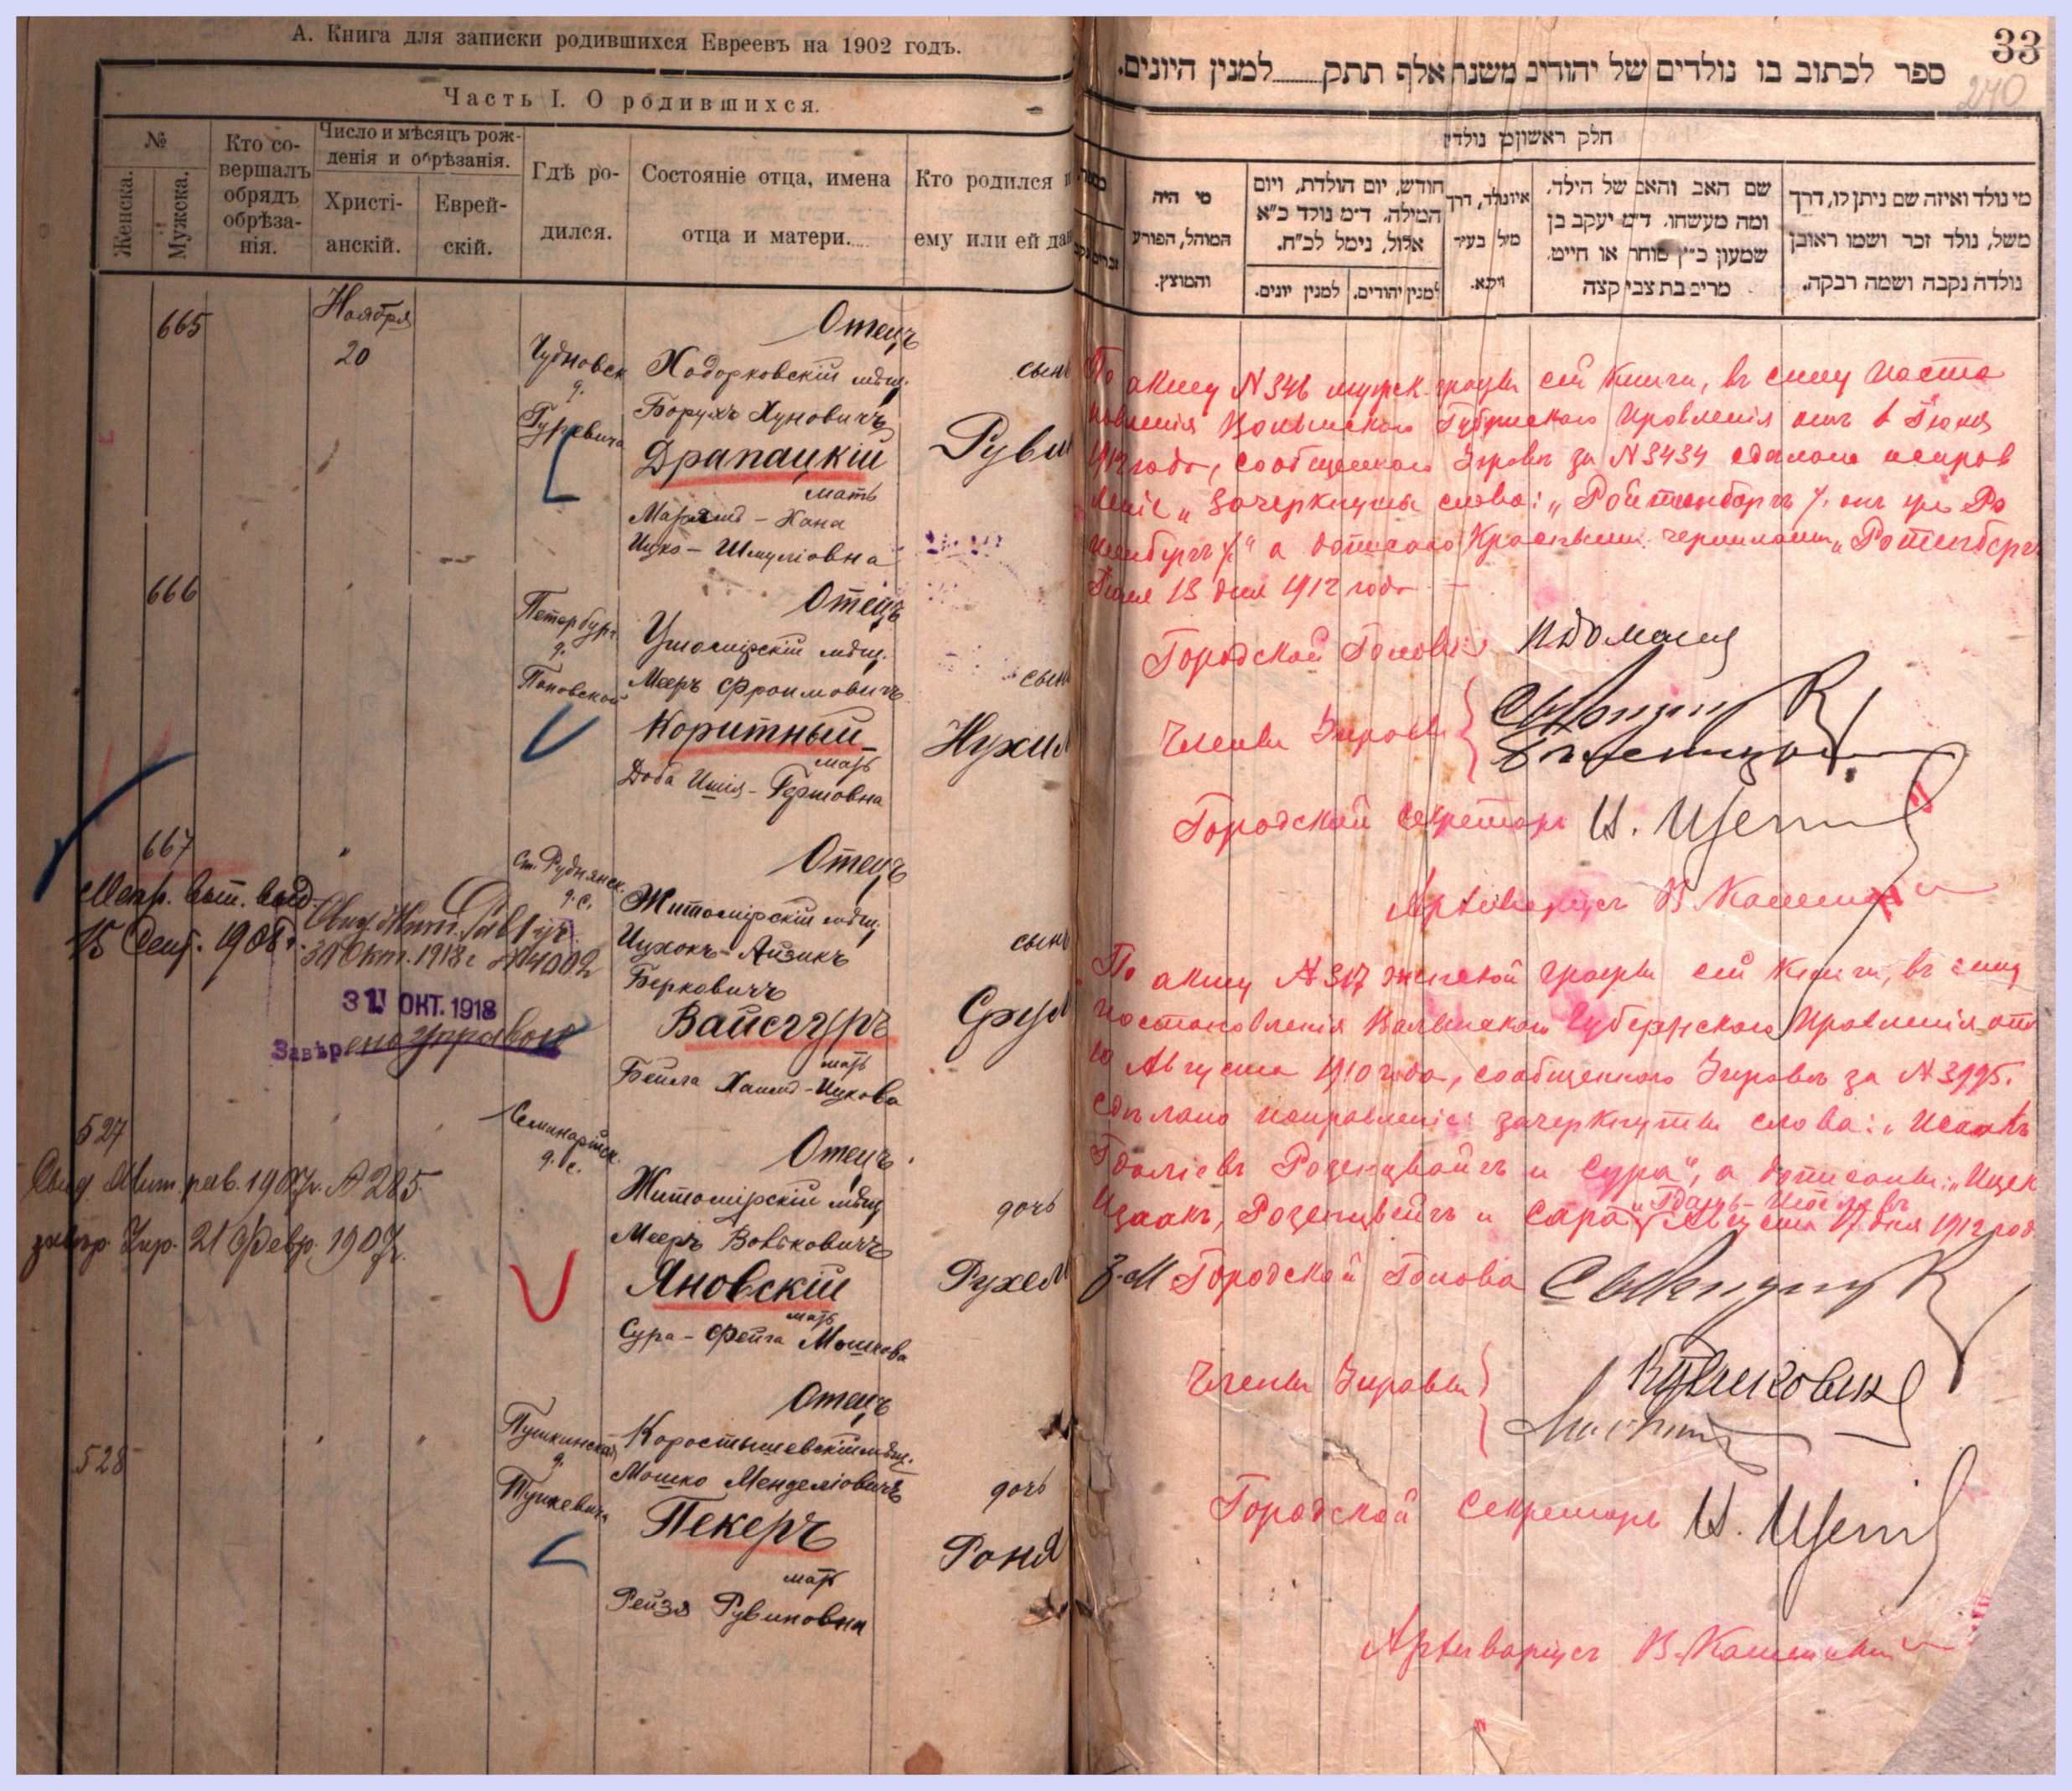 А. Книга для записки родившихся Евреевъ на 1902 годъ.
Часть I. О родившихся.
№
Женска.
Мужска.
Кто со-
вершалъ
обрядъ
обрѣза-
нія.
Число и мѣсяцъ рож-
денія и обрѣзанія.
Христі-
анскій.
Еврей-
скій.
Гдѣ ро-
дился.
Состояніе отца, имена
отца и матери.
Кто родился и
ему или ей дан
665
Ноября
20
Чудновск
д.
Гуревича
Отецъ
Ходорковскій мѣщ.
Борухъ Хуновичъ
Драпацкій
мать
Маріямъ - Хана
Ицко - Шмуліовна
сынъ
Руви
666
Петербург.
д.
Пановской
Отецъ
Ушомірскій мѣщ.
Мееръ Фроимовичъ
Коритный
мать
Доба Ишія - Гершовна
сынъ
Нухим
667
Метр. вып. выд.
15 Сент. 1908 г.
30 Окт. 1918 г. № 4002
31 ОКТ. 1918
Завѣрено управою
Ст. Руднянск.
д. с.
Отецъ
Житомірскій мѣщ.
Ицхокъ - Айзикъ
Берковичъ
Вайсггуръ
мать
Бейла Хаимъ - Ицкова
сынъ
Срул
527
Свид. Жит. рав. 1907 г. № 285
завѣр. Упр. 21 Февр. 1907 г.
Семинарійск.
д. с.
Отецъ
Житомірскій мѣщ
Мееръ Вовковичъ
Яновскій
мать
Сура - Фейга Мошкова
дочь
Рухел
528
Пушкинская
д.
Тушкевича
Отецъ
Коростышевскій мѣщ.
Мошко Менделіовичъ
Пекеръ
мать
Рейзя Рувиновна
дочь
Роня
33
240
ספר לכתוב בו נולדים של יהודים משנת אלף תתק למנין היונים.
חלק ראשון מן נולדים
מי היה
המוהל, הפורע
והמוצץ.
חודש, יום הולדת, ויום
המילה. ד״מ נולד כ״א
אלול, נימל לכ״ח.
למנין יהודים.
למנין יונים.
איו נולד, דרך
משל בעיר
ווילנא.
שם האב והאם של הילד,
ומה מעשהו. ד״מ יעקב בן
שמעון כ״ץ סוחר או חייט.
מרים בת צבי קצה
מי נולד ואיזה שם ניתן לו, דרך
משל, נולד זכר ושמו ראובן
נולדה נקבה ושמה רבקה.
По акту № 346 мужск. графы сей книги, въ силу поста
новленія Волынскаго Губернскаго Правленія отъ 6 Іюня
1912 года, сообщеннаго Управѣ за № 3434 сдѣлано исправ
леніе „зачеркнуты слова: „Ройтенбаргъ
а дописано красными чернилами „Ротенбергъ
Іюля 13 дня 1912 года
Городской Голова
Члены Управы
Городской Секретарь
Архиваріусъ В.
По акту № 317 женской графы сей книги, въ силу
постановленія Волынскаго Губернскаго Правленія отъ
10 Августа 1910 года, сообщеннаго Управѣ за № 3795.
сдѣлано исправленіе: зачеркнуты слова: „Исаакъ
Гдаліевъ Розенцвайгъ и Сура", а дописаны: „Ицек
Изаакъ, Розенцвейгъ и Сара Августа 17 дня 1912 год.
З-М Городской Голова
Члены Управы
Городской Секретарь
Архиваріусъ В.